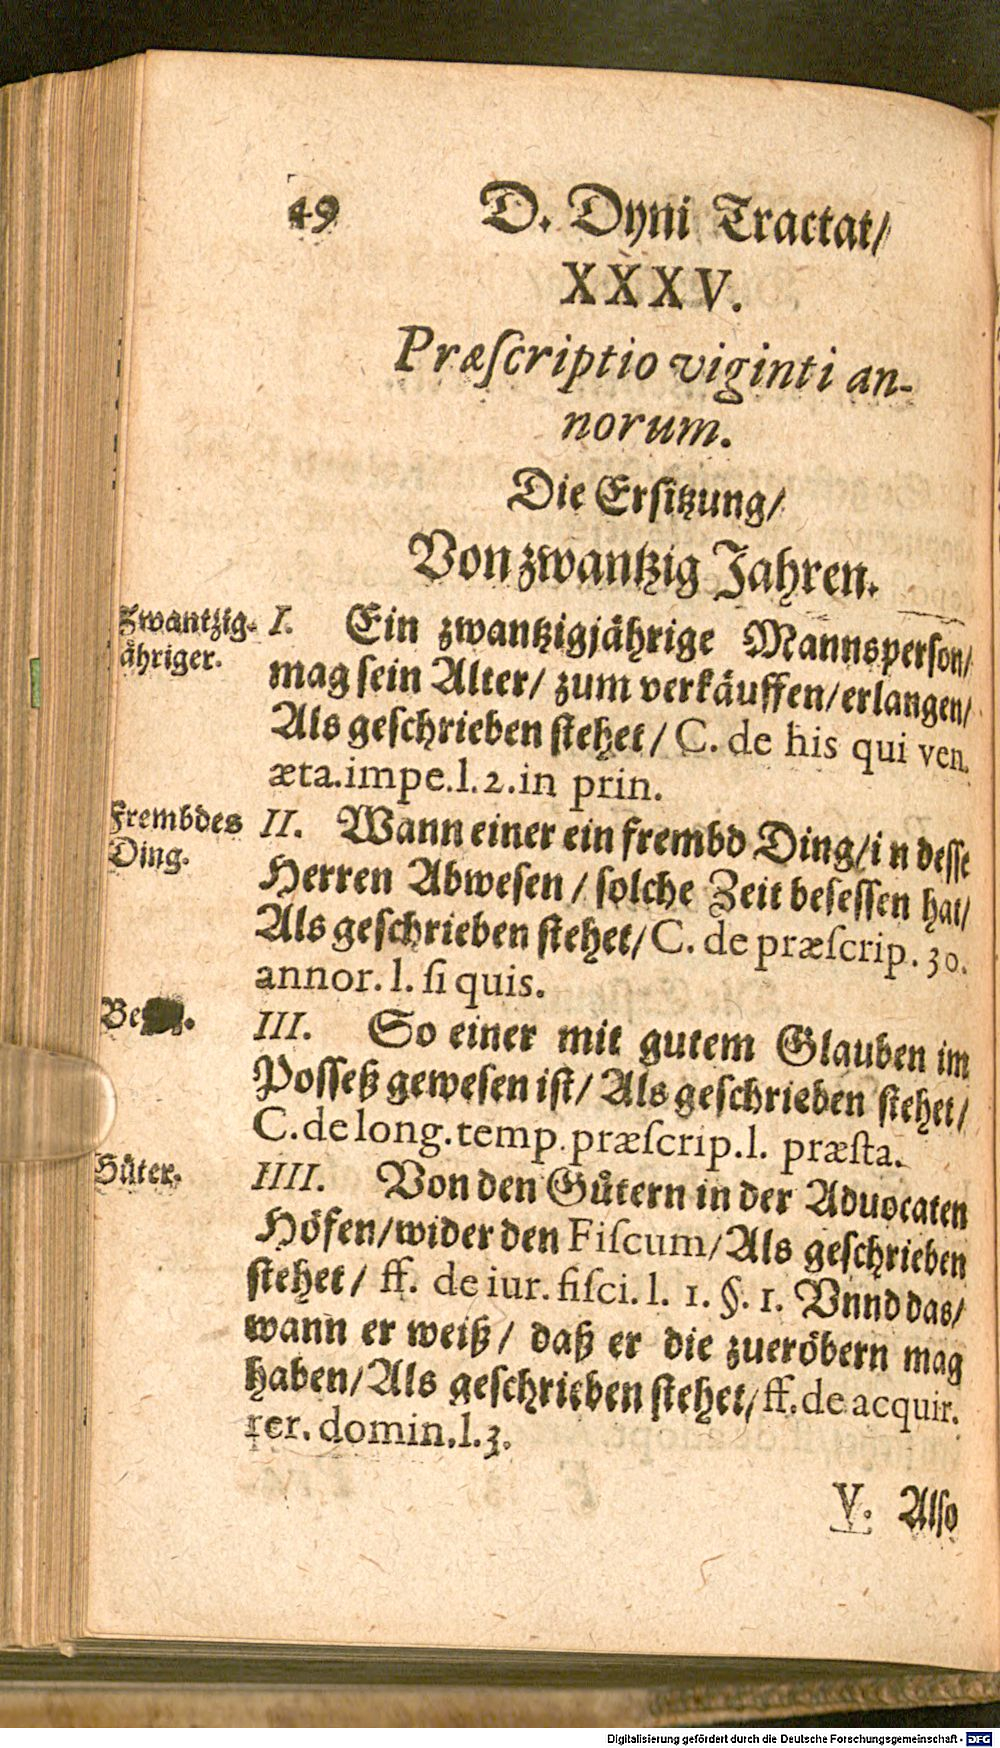 49 D. Dyni Tractat/
XXXV.
Præſcriptio viginti an-
norum.
Die Erſitzung/
Von zwantzig Jahren.
Zwantzig-
jähriger.
I. Ein zwantzigjährige Mannsperſon/
mag ſein Alter/ zum verkäuffen/erlangen/
Als geſchrieben ſtehet/ C. de his qui ven.
æta.impe.l.2.in prin.
Frembdes
Ding.
II. Wann einer ein frembd Ding/in deſſe
Herren Abweſen/ ſolche Zeit beſeſſen hat/
Als geſchrieben ſtehet/ C. de præſcrip. 30.
annor. l. ſi quis.
III. So einer mit gutem Glauben im
Poſſeß geweſen iſt/ Als geſchrieben ſtehet/
C.de long.temp.præſcrip.l. præſta.
Gůter.
IIII. Von den Gůtern in der Advocaten
Höfen/wider den Fiſcum/Als geſchrieben
ſtehet/ ff. de iur. fiſci. l. 1. §. 1. Vnnd das/
wann er weiß/ daß er die zueröbern mag
haben/Als geſchrieben ſtehet/ff.de acquir.
rer. domin.l.3.
V. Alſo
Digitalisierung gefördert durch die Deutsche Forschungsgemeinschaft - DFG